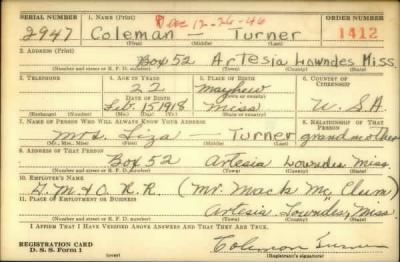 SERIAL NUMBER 1. NAME (Print) Dec 12-26-46 ORDER NUMBER
2947 Coleman — Turner 1412
(First) (Middle) (Last)
2. ADDRESS (Print)
Box 52 Artesia Lowndes Miss.
(Number and street or R. F. D. number) (Town) (County) (State)
3. TELEPHONE 4. AGE IN YEARS 5. PLACE OF BIRTH 6. COUNTRY OF CITIZENSHIP
22 Mayhew
DATE OF BIRTH (Town or county)
Feb. 15 1918 Miss U. S. A.
(Exchange) (Number) (Mo.) (Day) (Yr.) (State or country)
7. NAME OF PERSON WHO WILL ALWAYS KNOW YOUR ADDRESS 8. RELATIONSHIP OF THAT PERSON
Mrs. Liza — Turner grandmother
(Mr., Mrs., Miss) (First) (Middle) (Last)
9. ADDRESS OF THAT PERSON
Box 52 Artesia Lowndes Miss.
(Number and street or R. F. D. number) (Town) (County) (State)
10. EMPLOYER'S NAME
G. M. & O. R. R. (Mr. Mack Mc Clum)
11. PLACE OF EMPLOYMENT OR BUSINESS
Artesia Lowndes, Miss.
(Number and street or R. F. D. number) (Town) (County) (State)
I AFFIRM THAT I HAVE VERIFIED ABOVE ANSWERS AND THAT THEY ARE TRUE.
REGISTRATION CARD
D. S. S. Form 1 (over) Coleman Turner
(Registrant's signature)